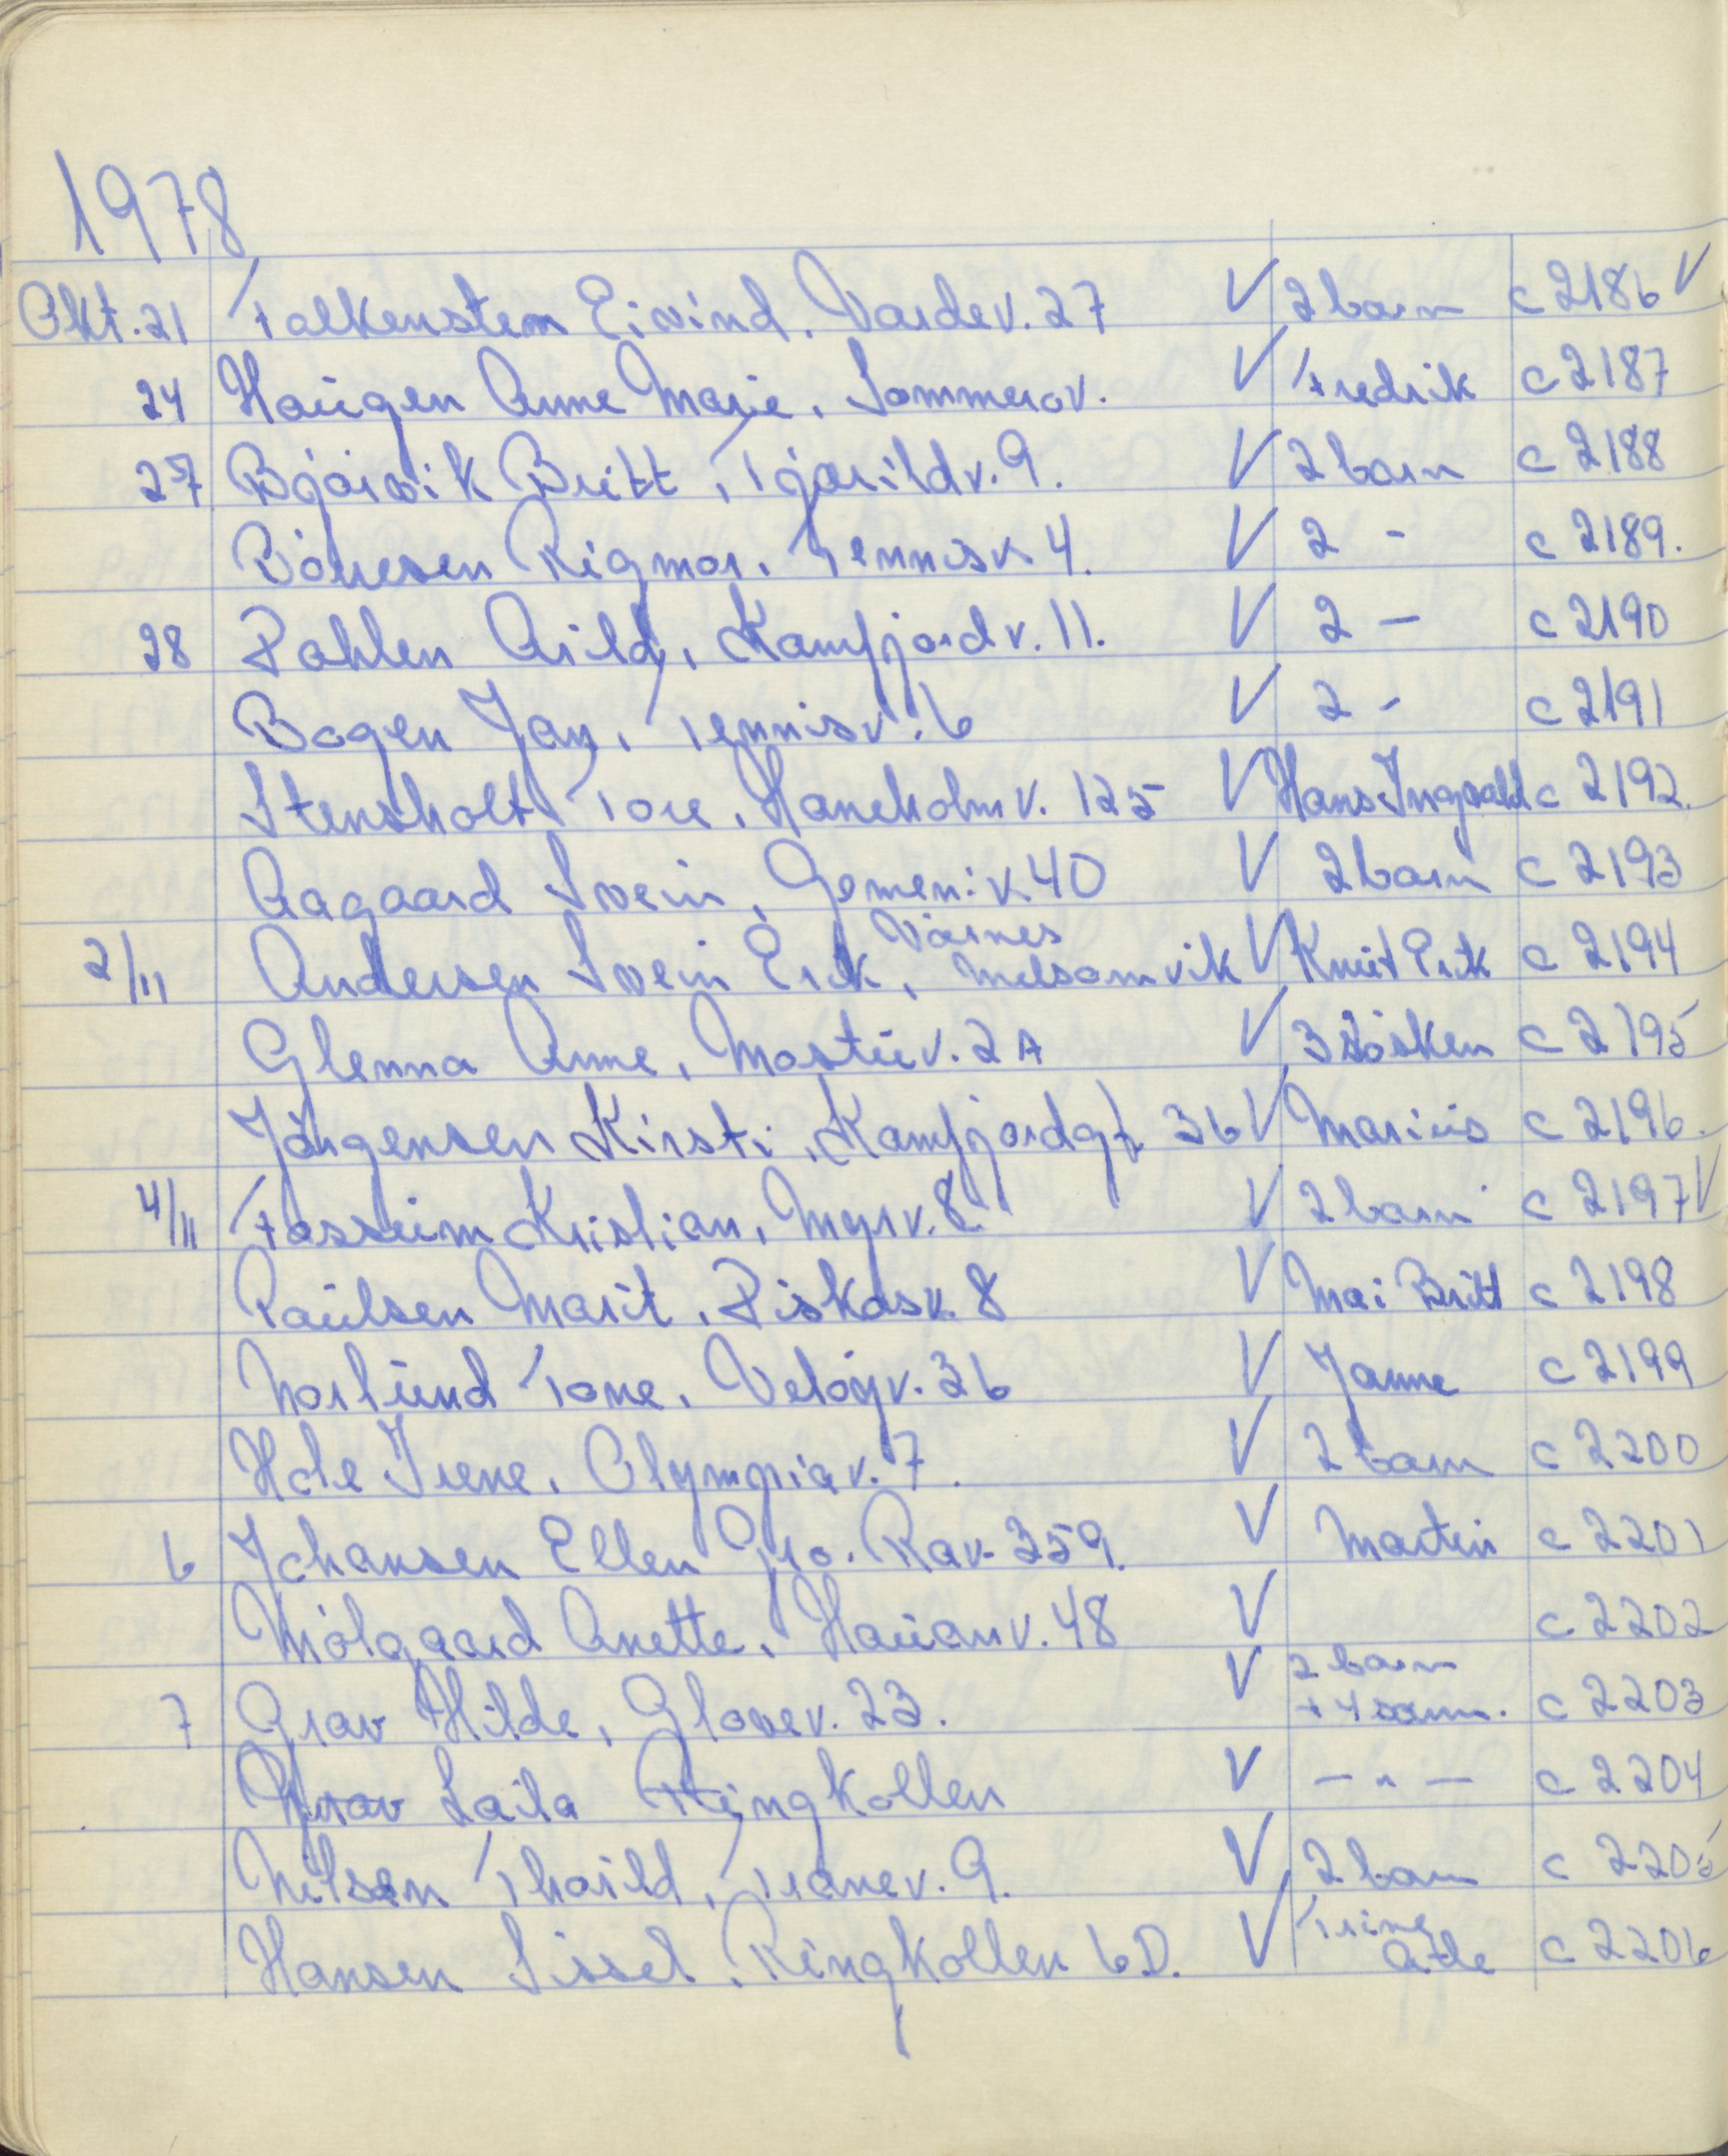 1978
Okt. 21 Falkensten Eivind. Vardev. 27 V 2 barn c 2186 V
24 Haugen Anne Marie. Sommerov. V Fredrik c 2187
27 Bjørvik Britt, Tjørildv. 9. V 2 barn c 2188
Rigmor. Tennisv. 4. V 2 - c 2189.
28 Pahlen Arild, Kamfjordv. 11. V 2 - c 2190
Bogen Jan, Tennisv. 6 V 2 - c 2191
Stensholt Tore. Haneholmv. 125 V Hans Ingvald c 2192.
Aagaard Svein, Gemeniv. 40 V 2 barn c 2193
Värnes
2/11 Andersen Svein Erik, Melsomvik V Knut Erik c 2194
Glenna Anne, Mostuev. 2A V 3 Søsken c 2195
Jørgensen Kirsti, Kamfjordgt 36 V Marius c 2196.
4/11 Fossum Kristian, Myrv. 8 V 2 barn c 2197 V
Paulsen Marit. Piskåsv. 8 V Mai Britt c 2198
Norlund Tone. Veløyv. 36 V Janne c 2199
Hole Irene. Olympiav. 7. V 2 barn c 2200
6 Johansen Ellen Gro. Rav. 359. V Martin c 2201
Mølgaard Anette. Hauanv. 48 V c 2202
2 barn
7 Grav Hilde, Glovev. 23. V + 4 samm. c 2203
Grav Laila Ringkollen V — " — c 2204
Nilsen Thorild, Tranev. 9. V 2 barn c 2205
Trine
Hansen Sissel. Ringkollen 6D. V Atle c 2206